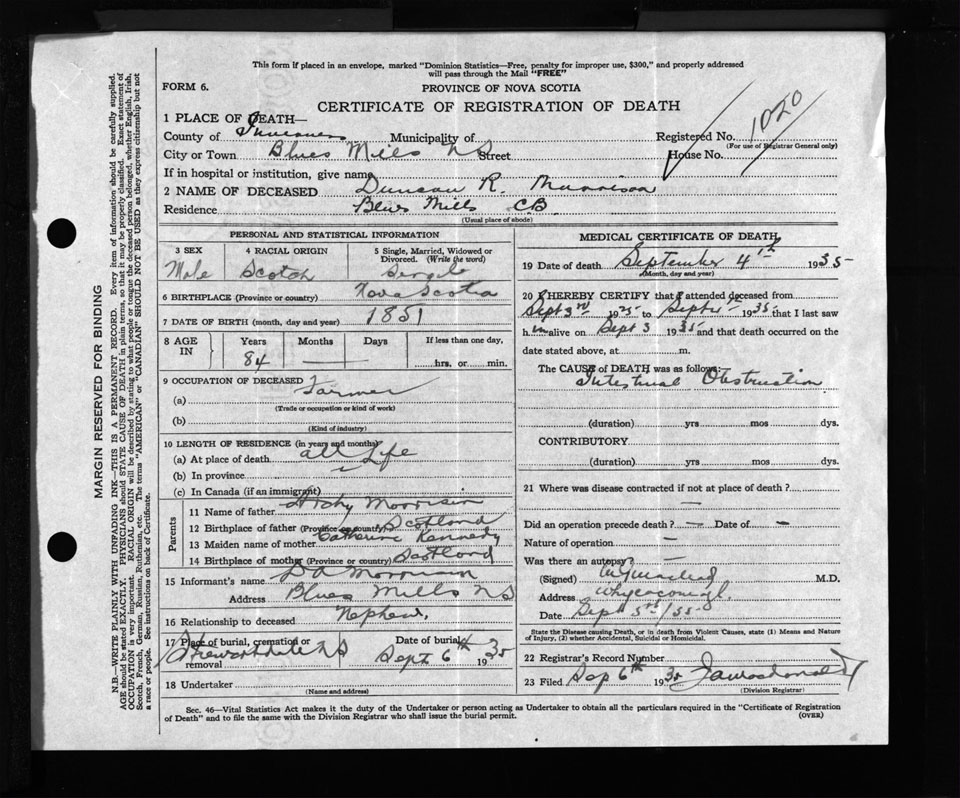 This form if placed in an envelope, marked "Dominion Statistics—Free, penalty for improper use, $300," and properly addressed
will pass through the Mail "FREE"
FORM 6.
PROVINCE OF NOVA SCOTIA
CERTIFICATE OF REGISTRATION OF DEATH
1 PLACE OF DEATH—
County of Inverness Municipality of Registered No. 1020
(For use of Registrar General only)
City or Town Blues Mills NS Street House No.
If in hospital or institution, give name
2 NAME OF DECEASED Duncan R. Morrison
Residence Blues Mills C.B.
(Usual place of abode)
PERSONAL AND STATISTICAL INFORMATION
3 SEX 4 RACIAL ORIGIN 5 Single, Married, Widowed or
Divorced. (Write the word)
Male Scotch Single
6 BIRTHPLACE (Province or country) Nova Scotia
7 DATE OF BIRTH (month, day and year) 1851
8 AGE IN Years Months Days If less than one day,
84 — hrs. or min.
9 OCCUPATION OF DECEASED Farmer
(a)
(Trade or occupation or kind of work)
(b)
(Kind of industry)
10 LENGTH OF RESIDENCE (in years and months)
(a) At place of death all Life
(b) In province
(c) In Canada (if an immigrant)
Parents
11 Name of father Morrison
12 Birthplace of father (Province or country) Scotland
13 Maiden name of mother Catherine Kennedy
14 Birthplace of mother (Province or country) Scotland
15 Informant's name D A Morrison
Address Blues Mills NS
16 Relationship to deceased Nephew,
17 Place of burial, cremation or removal Date of burial
Stewartdale NS Sept 6th 1935
18 Undertaker
(Name and address)
MEDICAL CERTIFICATE OF DEATH
19 Date of death September 4th 1935
(Month, day and year)
20 I HEREBY CERTIFY that I attended deceased from
Sept 3rd 1935 to Sept 1935 that I last saw
h im alive on Sept 3 1935 and that death occurred on the
date stated above, at m.
The CAUSE of DEATH was as follows:
Intestinal Obstruction
(duration) yrs mos dys.
CONTRIBUTORY
(duration) yrs. mos. dys.
21 Where was disease contracted if not at place of death ?
—
Did an operation precede death ? — Date of —
Nature of operation —
Was there an autopsy
(Signed) M.D.
Address Whycocomagh
Date Sept 5th/35
State the Disease causing Death, or in death from Violent Causes, state (1) Means and Nature
of Injury, (2) whether Accidental, Suicidal or Homicidal.
22 Registrar's Record Number
23 Filed Sep 6th 1935
(Division Registrar)
Sec. 46—Vital Statistics Act makes it the duty of the Undertaker or person acting as Undertaker to obtain all the particulars required in the "Certificate of Registration
of Death" and to file the same with the Division Registrar who shall issue the burial permit. (OVER)
MARGIN RESERVED FOR BINDING
N.B.—WRITE PLAINLY WITH UNFADING INK—THIS IS A PERMANENT RECORD. Every item of information should be carefully supplied.
AGE should be stated EXACTLY. PHYSICIANS should STATE CAUSE OF DEATH in plain terms, so that it may be properly classified. Exact statement of
OCCUPATION is very important. RACIAL ORIGIN will be described by stating to what people or tongue the deceased person belonged, whether English, Irish,
Scotch, French, German, Russian, Ruthenian, etc. The terms "AMERICAN" or "CANADIAN" SHOULD NOT BE USED as they express citizenship but not
a race or people. See instructions on back of Certificate.